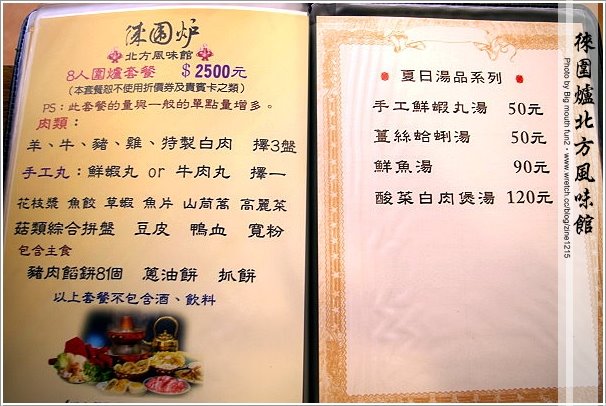 徠圍炉
北方風味館
8人圍爐套餐 $2500元
(本套餐恕不使用折價券及貴賓卡之類)
PS：此套餐的量與一般的單點量增多。
肉類：
羊、牛、豬、雞、特製白肉 擇3盤
手工丸：鮮蝦丸 or 牛肉丸 擇一
花枝漿 魚餃 草蝦 魚片 山茼萵 高麗菜
菇類綜合拼盤 豆皮 鴨血 寬粉
包含主食
豬肉餡餅8個 蔥油餅 抓餅
以上套餐不包含酒、飲料
夏日湯品系列
手工鮮蝦丸湯 50元
薑絲蛤蜊湯 50元
鮮魚湯 90元
酸菜白肉煲湯 120元
徠圍爐北方風味館
Photo by Big mouth fun2 · www.wretch.cc/blog/zine1215